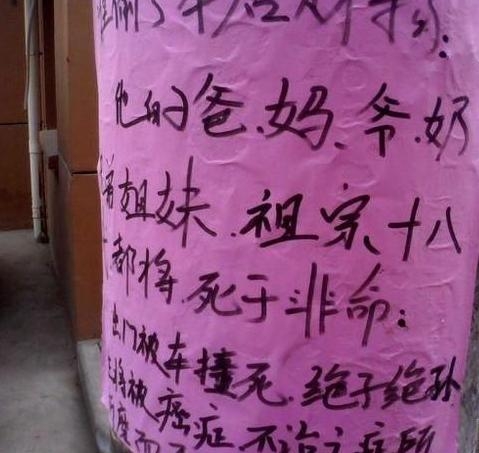 偷了车后
他的爸、妈、爷、奶
弟姐妹、祖宗十八
都将死于非命:
出门被车撞死、绝子绝孙
将被癌症、不治之症所